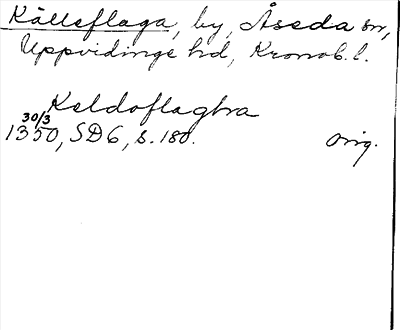 Källeflaga, by, Åseda sn,
Uppvidinge hd, Kronob. l.
Keldoflaghra
30/3
1350, SD 6, s. 180. Orig.